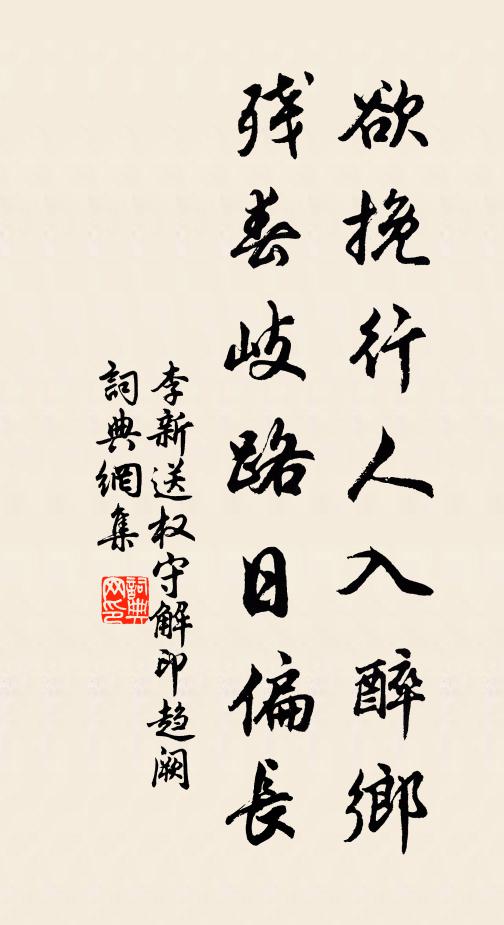 欲挽行人入醉鄉
残春岐路日偏長
李新送权守解印趋阙
詞典網集
詞典網印